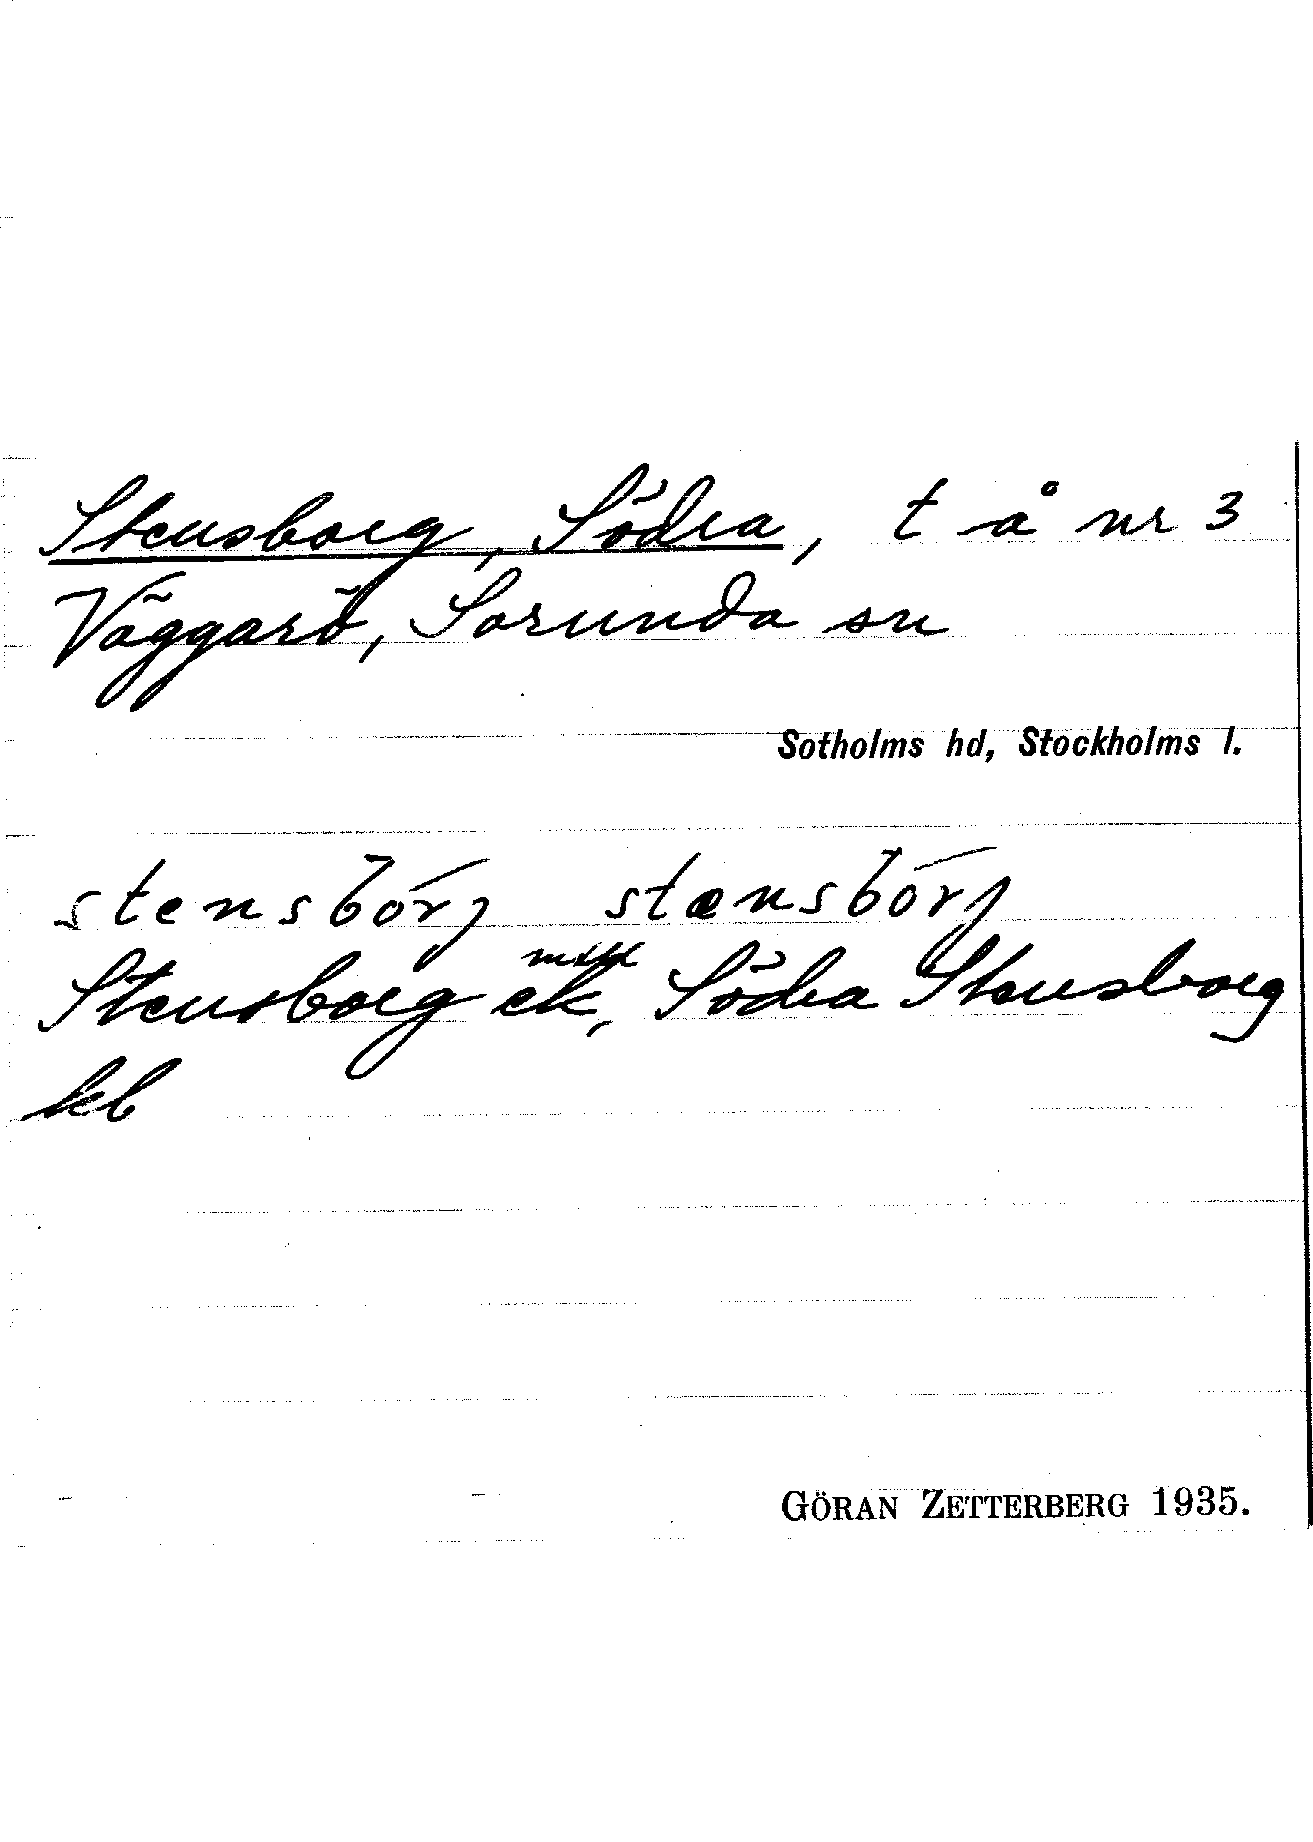 Stensborg, Södra, t å nr 3
Väggarö, Sorunda sn
Sotholms hd, Stockholms l.
stensbórj stænsbórj
Stensborg ek, Södra Stensborg
kb
GÖRAN ZETTERBERG 1935.